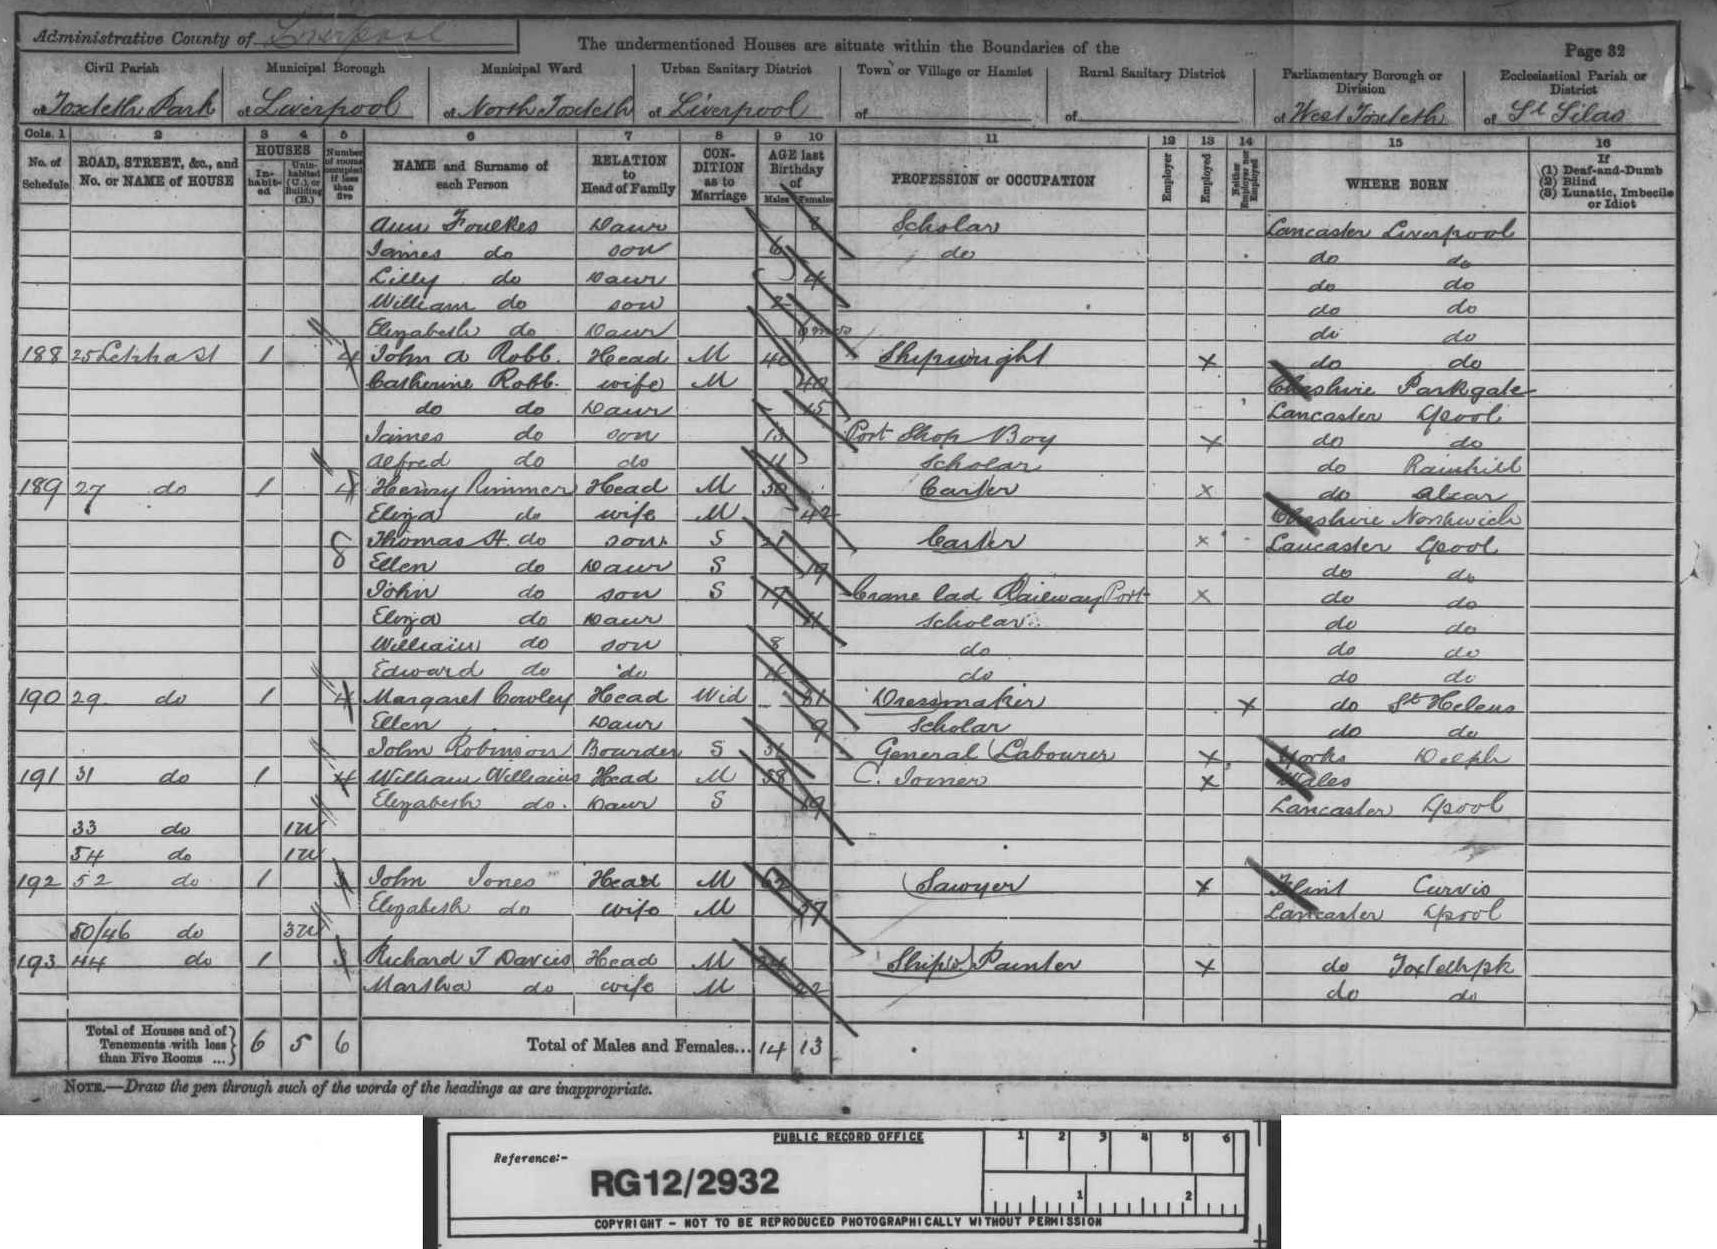 Administrative County of Liverpool
The undermentioned Houses are situate within the Boundaries of the
Page 32
Civil Parish of Toxteth Park
Municipal Borough of Liverpool
Municipal Ward of North Toxteth
Urban Sanitary District of Liverpool
Town or Village or Hamlet of
Rural Sanitary District of
Parliamentary Borough or Division of West Toxteth
Ecclesiastical Parish or District of St Silas
Cols. 1 2 3 4 5 6 7 8 9 10 11 12 13 14 15 16
No. of Schedule
ROAD, STREET, &c., and No. or NAME of HOUSE
HOUSES
In-habit-ed
Unin-habited (U.), or Building (B.)
Number of rooms occupied if less than five
NAME and Surname of each Person
RELATION to Head of Family
CON-DITION as to Marriage
AGE last Birthday of
Males Females
PROFESSION or OCCUPATION
Employer
Employed
Neither Employer nor Employed
WHERE BORN
If (1) Deaf-and-Dumb (2) Blind (3) Lunatic, Imbecile or Idiot
Ann Foulkes Daur 8 Scholar Lancaster Liverpool
James do son 6 do do do
Lilly do Daur 4 do do
William do son 2 do do
Elizabeth do Daur do do
188 25 St 1 4 John A Robb. Head M 40 Shipwright X do do
Catherine Robb. wife M 40 Cheshire Parkgate
do do Daur 15 Lancaster Lpool
James do son 13 Port Shop Boy X do do
Alfred do do 11 Scholar do Rainhill
189 27 do 1 4 Henry Rimmer Head M Carter X do
Eliza do wife M 42 Cheshire Northwich
8 Thomas H. do son S 21 Carter X Lancaster Lpool
Ellen do Daur S 19 do do
John do son S 17 Crane lad Railway Port X do do
Eliza do Daur 11 Scholar do do
William do son 8 do do do
Edward do do do do do
190 29 do 1 4 Margaret Cowley Head Wid Dressmaker X do St Helens
Ellen Daur 9 Scholar do do
John Robinson Boarder S General Labourer X Yorks Delph
191 31 do 1 4 William Williams Head M 58 C. Joiner X Wales
Elizabeth do. Daur S 19 Lancaster Lpool
33 do 1U
54 do 1U
192 52 do 1 3 John Jones Head M 62 Sawyer X Flint
Elizabeth do wife M 57 Lancaster Lpool
50/46 do 3U
193 44 do 1 3 Richard T Davies Head M 24 Ship Painter X do Toxteth pk
Martha do wife M 22 do do
Total of Houses and of Tenements with less than Five Rooms ... 6 5 6
Total of Males and Females... 14 13
NOTE.—Draw the pen through such of the words of the headings as are inappropriate.
PUBLIC RECORD OFFICE
1 2 3 4 5 6
Reference:-
RG12/2932
1 2
COPYRIGHT - NOT TO BE REPRODUCED PHOTOGRAPHICALLY WITHOUT PERMISSION